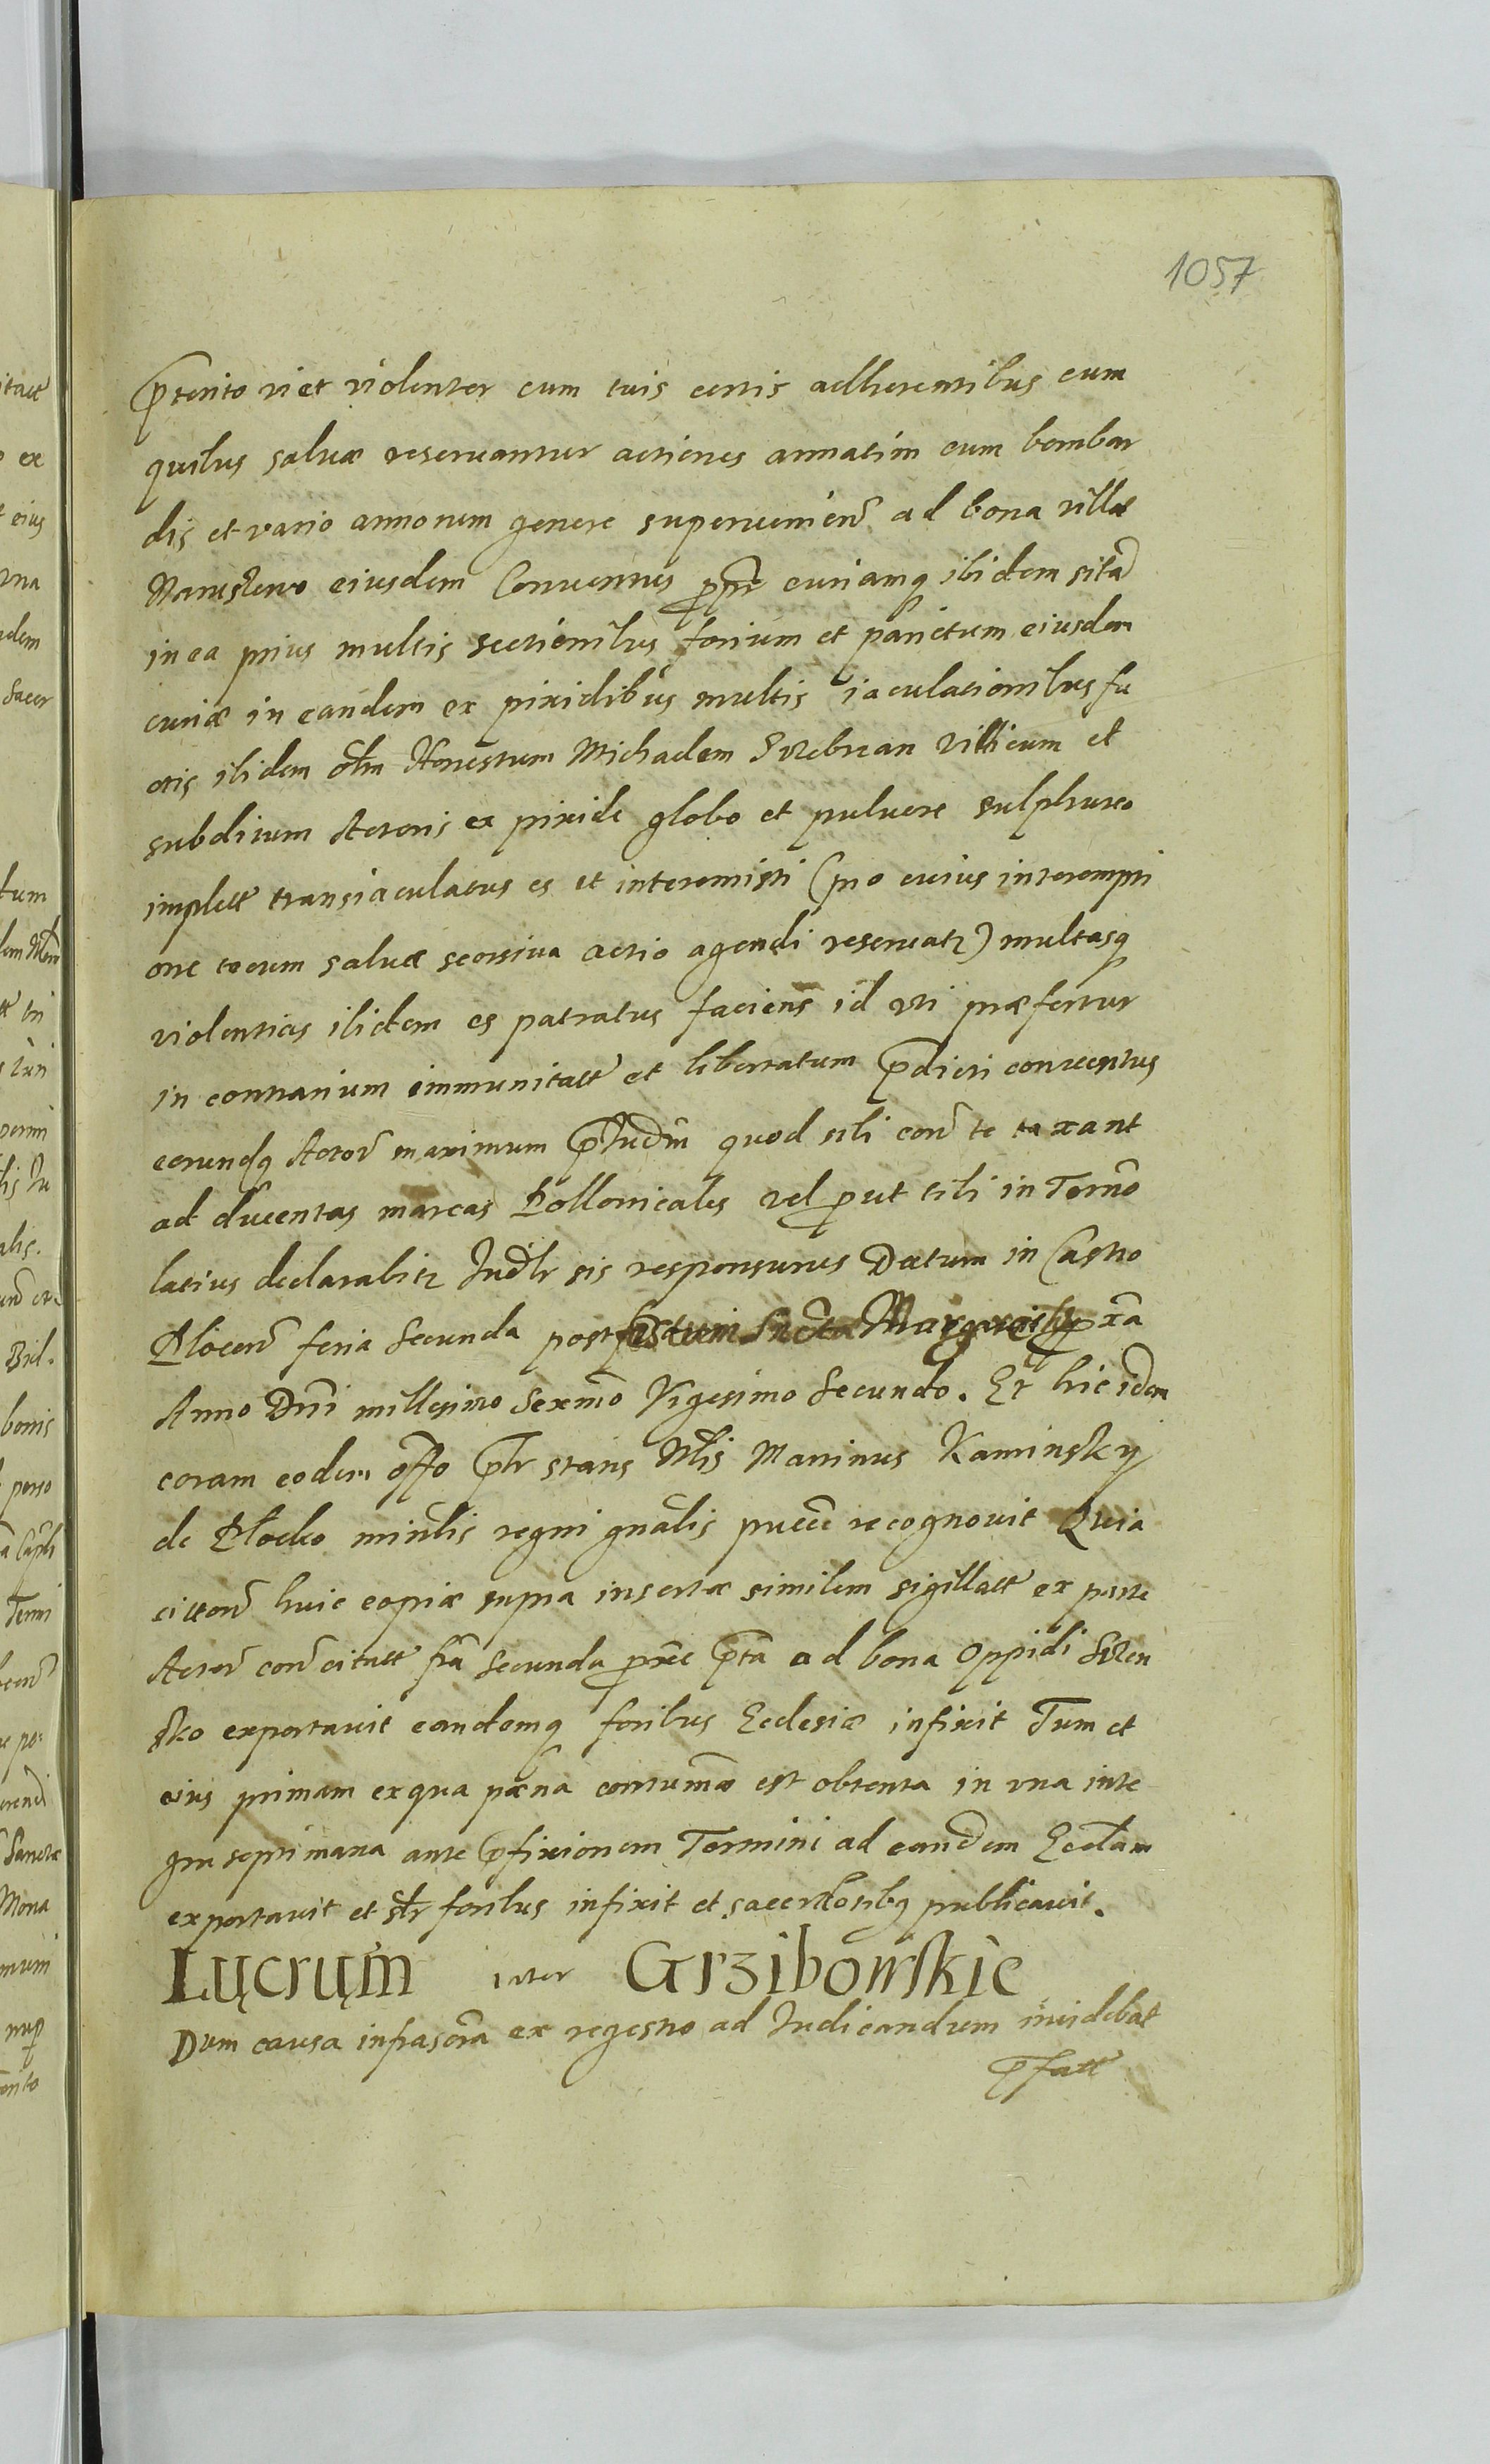 1057
p̄terito vi et violenter cum tuis certis adherentibus cum
quibus saluæ reseruantur actiones armatim cum bombar
dis et vario armorum genere superuenien̄ ad bona villæ
eiusdem Conuentus ꝓpr̄ curiamq ibidem sitā
in ea prius multis sectionibus forium et parietum eiusdem
curiæ in eandem ex pixidibus multis iaculationibus fa
ctis ibidem ol̄m Honestum Michaelem Villicum et
subditum Actoris ex pixide globo et puluere sulphureo
implett transiaculatus es et interemisti (pro cuius interempti
one tecum salua seorsiua actio agendi reseruatz) multasq
violentias ibidem es patratus faciens id vti præfertur
in contrarium immunitatt et libertatum p̄dicti conuentus
eorundq Actor̄ maximum p̄iud̄m quod sibi con̄ te taxant
ad ducentas marcas Pollonicales vel ꝓut tibi in Termō
latius declarabitz Jud̄lr sis responsurus Datum in Castro
Plocen̄ feria Secunda post festum Sanctæ Margaretæ ꝓxā
Anno Dnī millesimo Sexmō Vigesimo Secundo. Et hic idem
coram eodem offo p̄lr stans Nl̄is Martinus Kaminsky
de Plocko min̄lis regni gn̄alis recognouit Quia
citton̄ huic copiæ supra insertæ similem sigillatt ex parte
Actor̄ con̄ citatt fr̄a Secunda p̄tā ad bona Oppidi Szren
sko exportauit eandemq foribus Ecclesiæ infixit Tum et
eius primam ex qua pæna contumā est obtenta in vna inte
gra septimana ante p̄fixionem Termini ad eandem Eccl̄am
exportauit et sl̄r foribus infixit et sacerdotibq publicauit.
Lucrum inter Grzibowskie
Dum causa infrascrā ex regestro ad Judicandum incidebat
p̄fatt